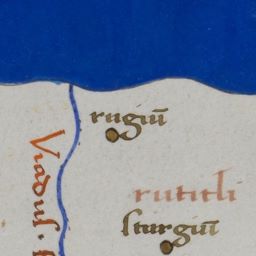 rugiū
Viadus.
rutitli
sturgiū